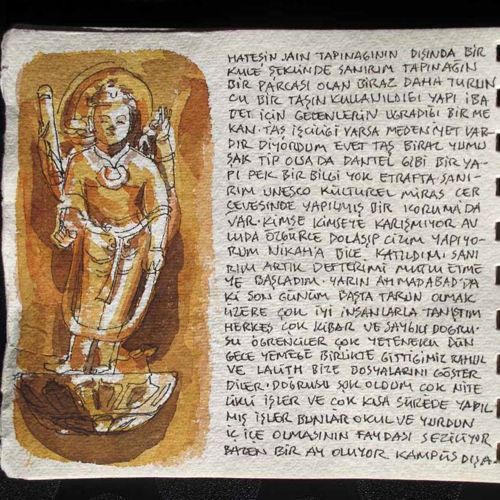 HATEŞİN JAIN TAPINAĞININ DIŞINDA BİR
KULE ŞEKLİNDE SANIRIM TAPINAĞIN
BİR PARÇASI OLAN BİRAZ DAHA TURUN
CU BİR TAŞIN KULLANILDIĞI YAPI İBA
DET İÇİN GELENLERİN UĞRADIĞI BİR ME
KAN. TAŞ İŞÇİLİĞİ VARSA MEDENİYET VAR
DIR DİYORDUM EVET TAŞ BİRAZ YUMU
ŞAK TİP OLSA DA DANTEL GİBİ BİR YA
PI PEK BİR BİLGİ YOK ETRAFTA SANI
RIM UNESCO KÜLTÜREL MİRAS ÇER
ÇEVESİNDE YAPILMIŞ BİR KORUMA DA
VAR. KİMSE KİMSEYE KARIŞMIYOR AV
LUDA ÖZGÜRCE DOLAŞIP ÇİZİM YAPIYO
RUM NİKAH'A BİLE KATILDIM. SANI
RIM ARTIK DEFTERİMİ ETME
YE BAŞLADIM. YARIN AHMADABAD'DA
Kİ SON GÜNÜM BAŞTA TARUN OLMAK
ÜZERE ÇOK İYİ İNSANLARLA TANIŞTIM
HERKES ÇOK KİBAR VE SAYGILI DOĞRU.
SU ÖĞRENCİLER ÇOK YETENEKLİ DÜN
GECE YEMEĞE BİRLİKTE GİTTİĞİMİZ RAHUL
VE LALITH BİZE DOSYALARINI GÖSTER
DİLER. DOĞRUSU ŞOK OLDUM ÇOK NİTE
LİKLİ İŞLER VE ÇOK KISA SÜREDE YAPIL
MIŞ İŞLER BUNLAR OKUL VE YURDUN
İÇ İÇE OLMASININ FAYDASI SEZİLİYOR
BAZEN BİR AY OLUYOR KAMPÜS DIŞA